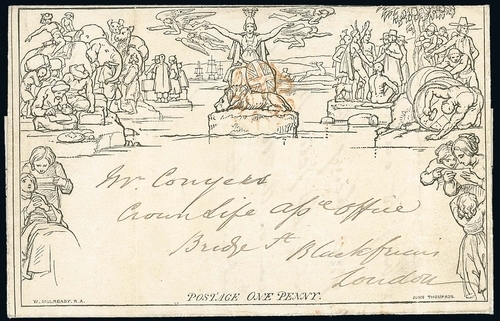 Mr. Conyers
Crown Life Assce Office
Bridge St Blackfriars
London
POSTAGE ONE PENNY.
W. MULREADY, R.A.
JOHN THOMPSON.